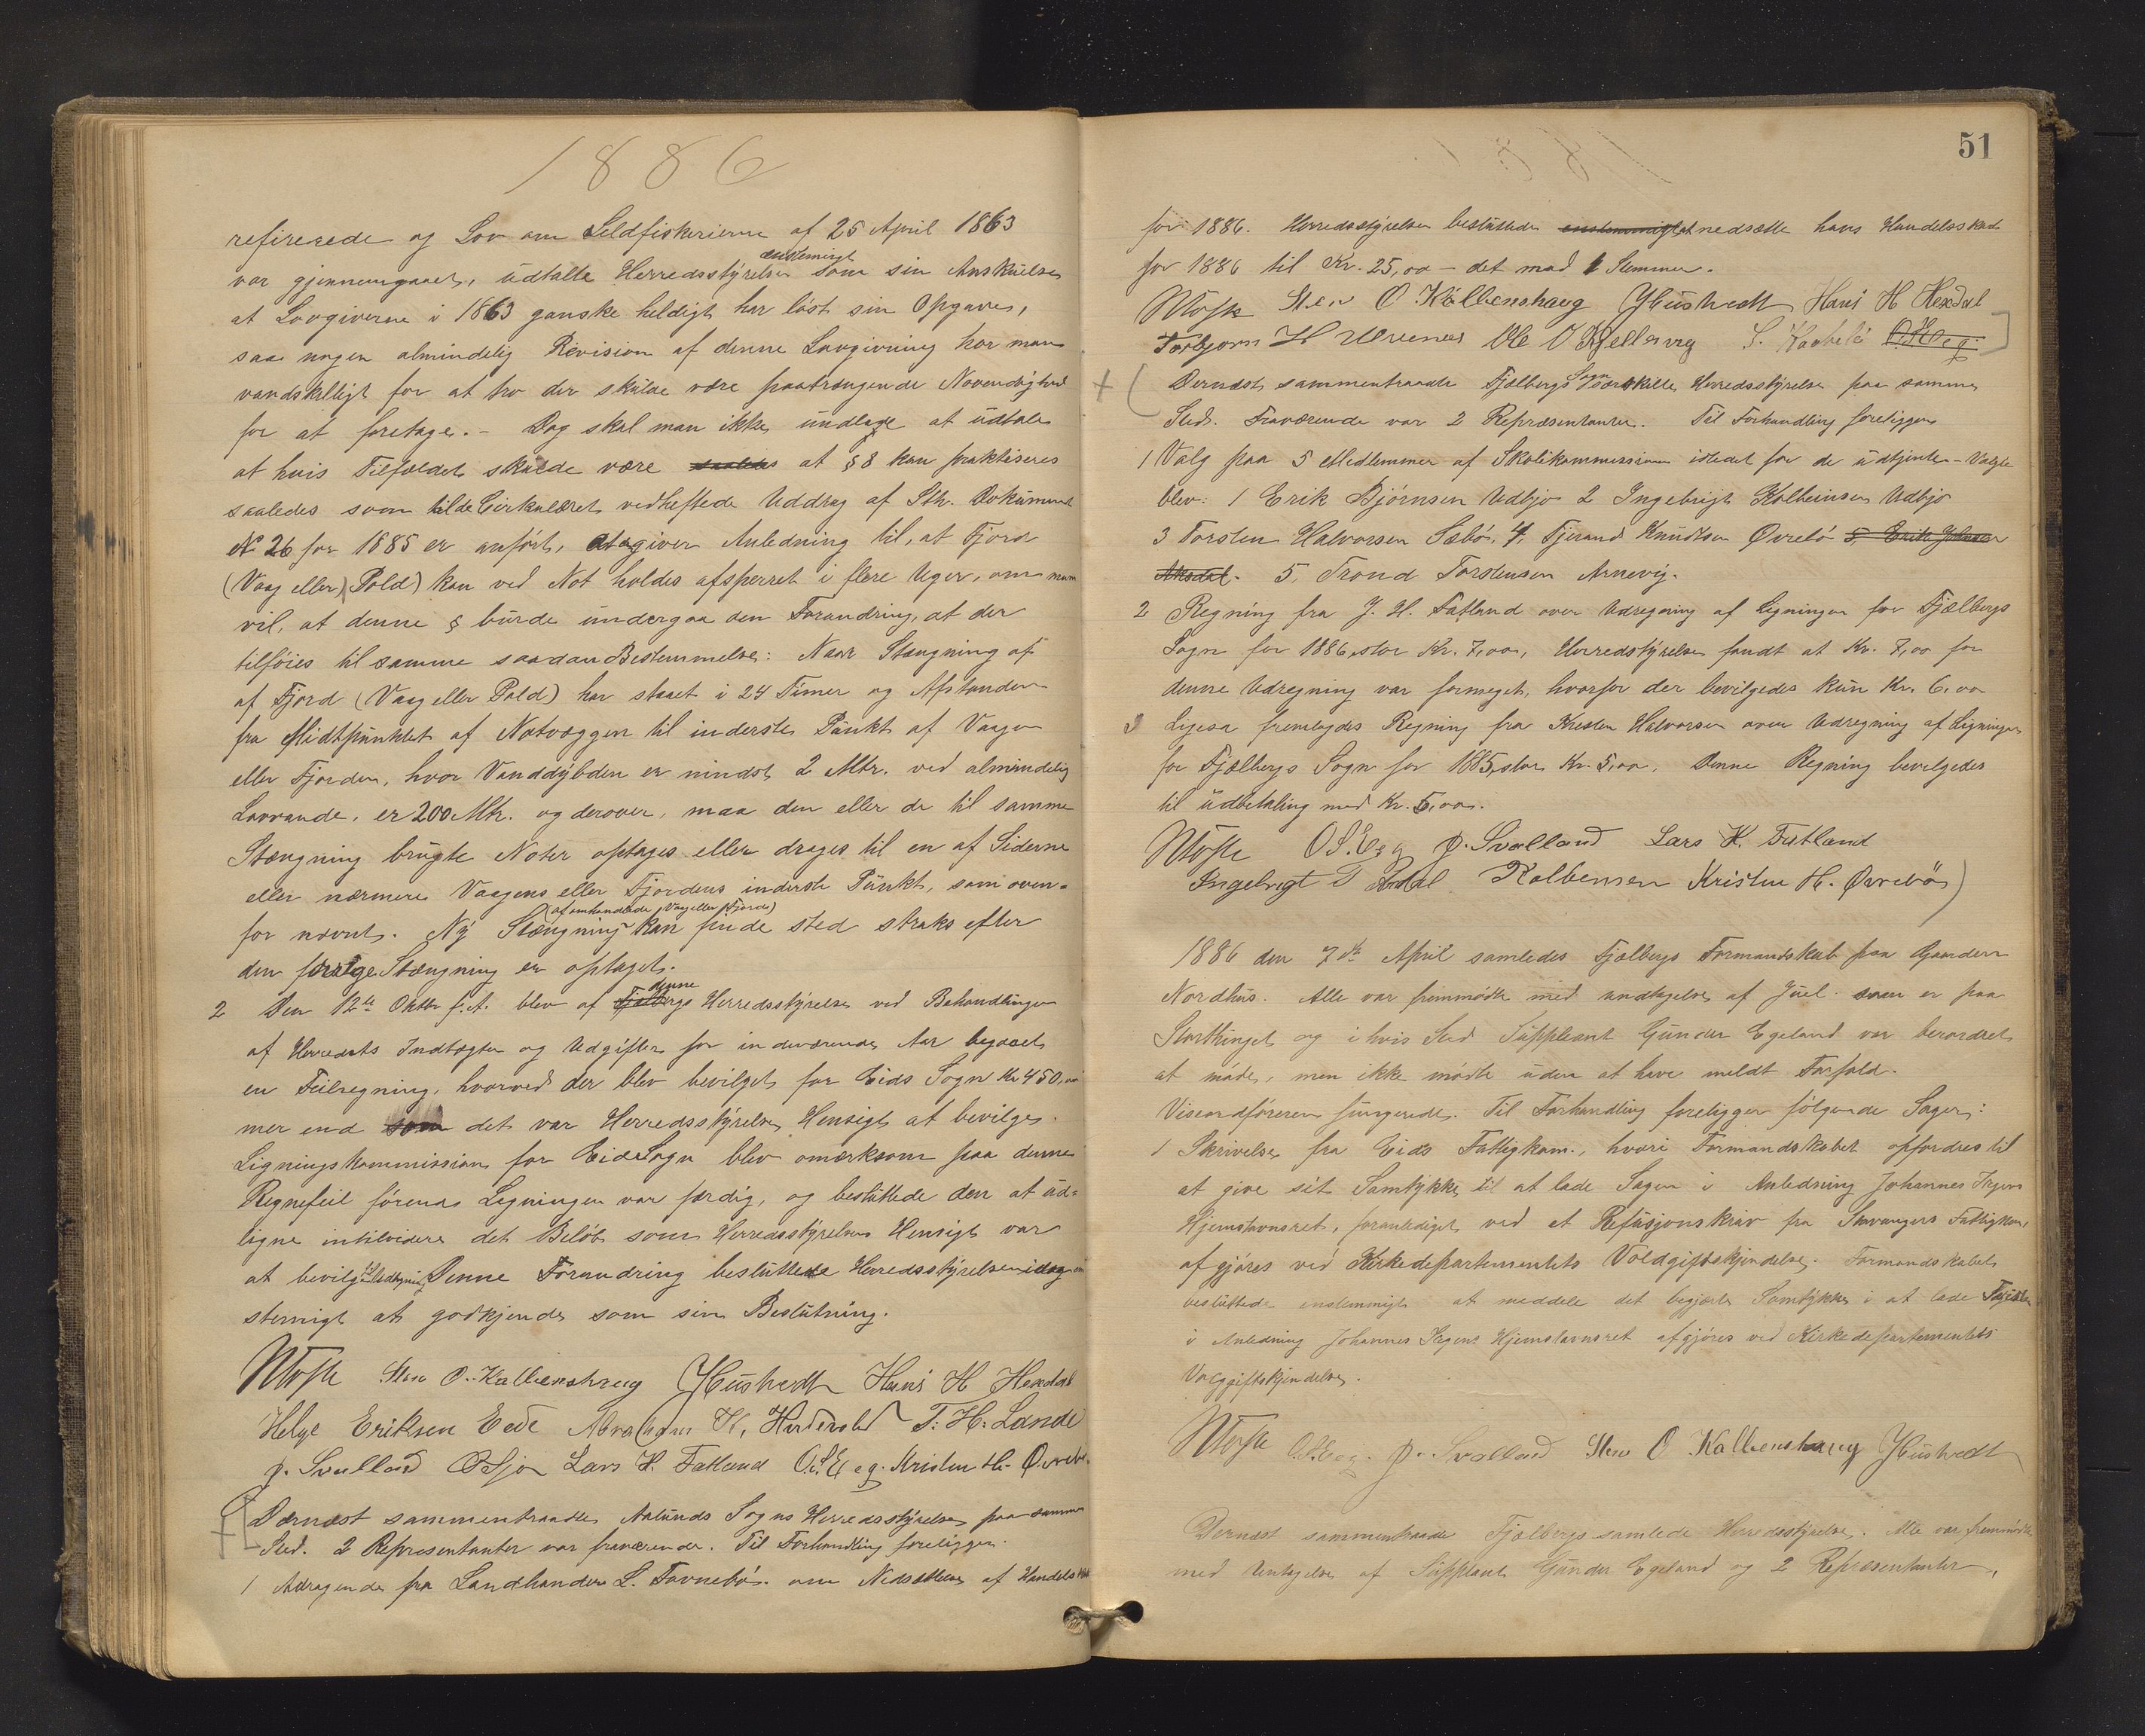 1886
refirerede og Lov om Sildfiskerierne af 25 April 1863
var gjennemgaaet, udtalte Herredsstyrelsen enstemigt som sin Anskuelse
at Lovgiverne i 1863 ganske heldigt har löst sin Opgave,
saa nogen almindelig Revision af denne Lovgivning har man
vandskelligt for at tro der skulde være paatrængende Novendighed
for at foretage. - Dog skal man ikke undlade at udtale
at hvis Tilfældet skulde være saaledes at § 8 kan praktiseres
saaledes som tilde Cirkulæret vedheftede Uddrag af Sth. Dokument
No 26 for 1885 er anfört, giver Anledning til, at Fjord
(Vaag eller Pold) kan ved Not holdes afsperret i flere Uger, om man
vil, at denne § burde undergaa den Forandring, at der
tilföies til samme saadan Bestemmelse: Naar Stængning af
af Fjord (Vaag eller Pold) har staaet i 24 Timer og Afstanden
fra Midtpunktet af Notvæggen til inderste Punkt af Vaagen
eller Fjorden, hvor Vanddybden er mindst 2 Mtr. ved almindelig
Lavvande, er 200 Mtr. og derover, maa den eller de til samme
Stængning brugte Noter optages eller drages til en af Siderne
eller nærmere Vaagens eller Fjordens inderste Punkt, som oven-
for nævnt. Ny Stængning (af omhandlede Vaag eller Fjord) kan finde sted straks efter
den forrige Stængning er optaget.
2 Den 12te Oktbr f. A. blev af Fjelbergs denne Herredsstyrelse ved Behandlingen
af Herredets Indtægter og Udgifter for indeværende Aar begaaet
en Feilregning, hvorved der blev bevilget for Eids Sogn Kr 450,00
mer end som det var Herredsstyrelsens Hensigt at bevilge.
Ligningskommissionen for Eids Sogn blev omærksom paa denne
Regnefeil förend Ligningen var færdig, og besluttede den at ud-
ligne intilvidere det Belöb som Herredsstyrelsens Hensigt var
at bevilge til Udligning. Denne Forandring besluttede Herredsstyrelsen idag en-
stemigt at godkjende som sin Beslutning.
Sten O. Kalbenshaug JHustvedt Hans H Hexdal
Helge Eriksen Eede Abraham K. T. H. Lande
P. Svalland Lars H. Fatland O. S. Eeg. Kristen H. Øvrebö
Dernæst sammentraadte Aalunds Sogns Herredsstyrelse paa samme
Sted. 2 Repræsentanter var fraværende. Til Forhandling foreligger.
1 Andragende fra Landhandler L. om Nedsættelse af Handelsskat
51
for 1886. Herredsstyrelsen besluttede enstemmigt at nedsætte hans Handelsskat
for 1886 til Kr. 25,00 - det mod 1 Stemmer.
Sten O Kalbenshaug JHustvedt Hans H Hexdal
Torbjorn H Ole O Kjellesvig
Dernæst sammentraadte Fjælbergs Sogns særskilte Herredsstyrelse paa samme
Sted. Fraværende var 2 Repræsentanter. Til Forhandling foreligger
1 Valg paa 5 Medlemmer af Skolekommissionen istedet for de udtjente - Valgte
blev: 1 Erik Bjørnsen Udbjo 2 Ingebrigt Kolbeinsen Udbjo
3 Torsten Halvorsen Sæbö, 4, Tjerand Knudtsen Øvrebö 5, Erik
5, Trond Torstensen Arnevig.
2 Regning fra J. H. Fatland over Udregning af Ligningen for Fjælbergs
Sogn for 1886, stor Kr. 7,00, Herredstyrelsen fandt at Kr. 7,00 for
denne Udregning var formeget, hvorfor der bevilgedes kun Kr. 6,00
3 Ligesa fremlagdes Regning fra Kristen Halvorsen over Udregning af Ligningen
for Fjælbergs Sogn for 1885, stor Kr. 5,00. Denne Regning bevilgedes
til udbetaling med Kr. 5,00.
O S. Eeg P. Svalland Lars H. Fatland
Ingebrigt Kolbensen Kristen H. Øvrebö
1886 den 7de April samledes Fjælbergs Formandskab paa Gaarden
Nordhus. Alle var fremmödte med undtagelse af Juel som er paa
Storthinget og i hvis Sted Suppleant Gunder Egeland var berordret
at möde, men ikke mödte uden at have meldt Forfald.
Viseordföreren fungerede. Til Forhandling foreligger fölgende Sager:
1 Skrivelse fra Eids Fattigkom., hvori Formandskabet opfordres til
at give sit Samtykke til at lade Sagen i Anledning Johannes
Hjemstavnsret, foranlediget ved et Refusjonskrav fra Stavangers Fattigkom,
afgjöres ved Kirkedepartementets Voldgiftskjendelse. Formandskabet
besluttede enstemmigt at meddele det begjærte Samtykke i at lade
i Anledning Johannes Hjemstavnsret afgjöres ved Kirkedepartementets
Voldgiftskjendelse.
O.S. Eeg. P. Svalland Sten O Kalbenshaug JHustvedt
Dernæst sammentraadte Fjælbergs samlede Herredsstyrelse. Alle var fremmödte
med Untagelse af Suppleant Gunder Egeland og 2 Repræsentanter,